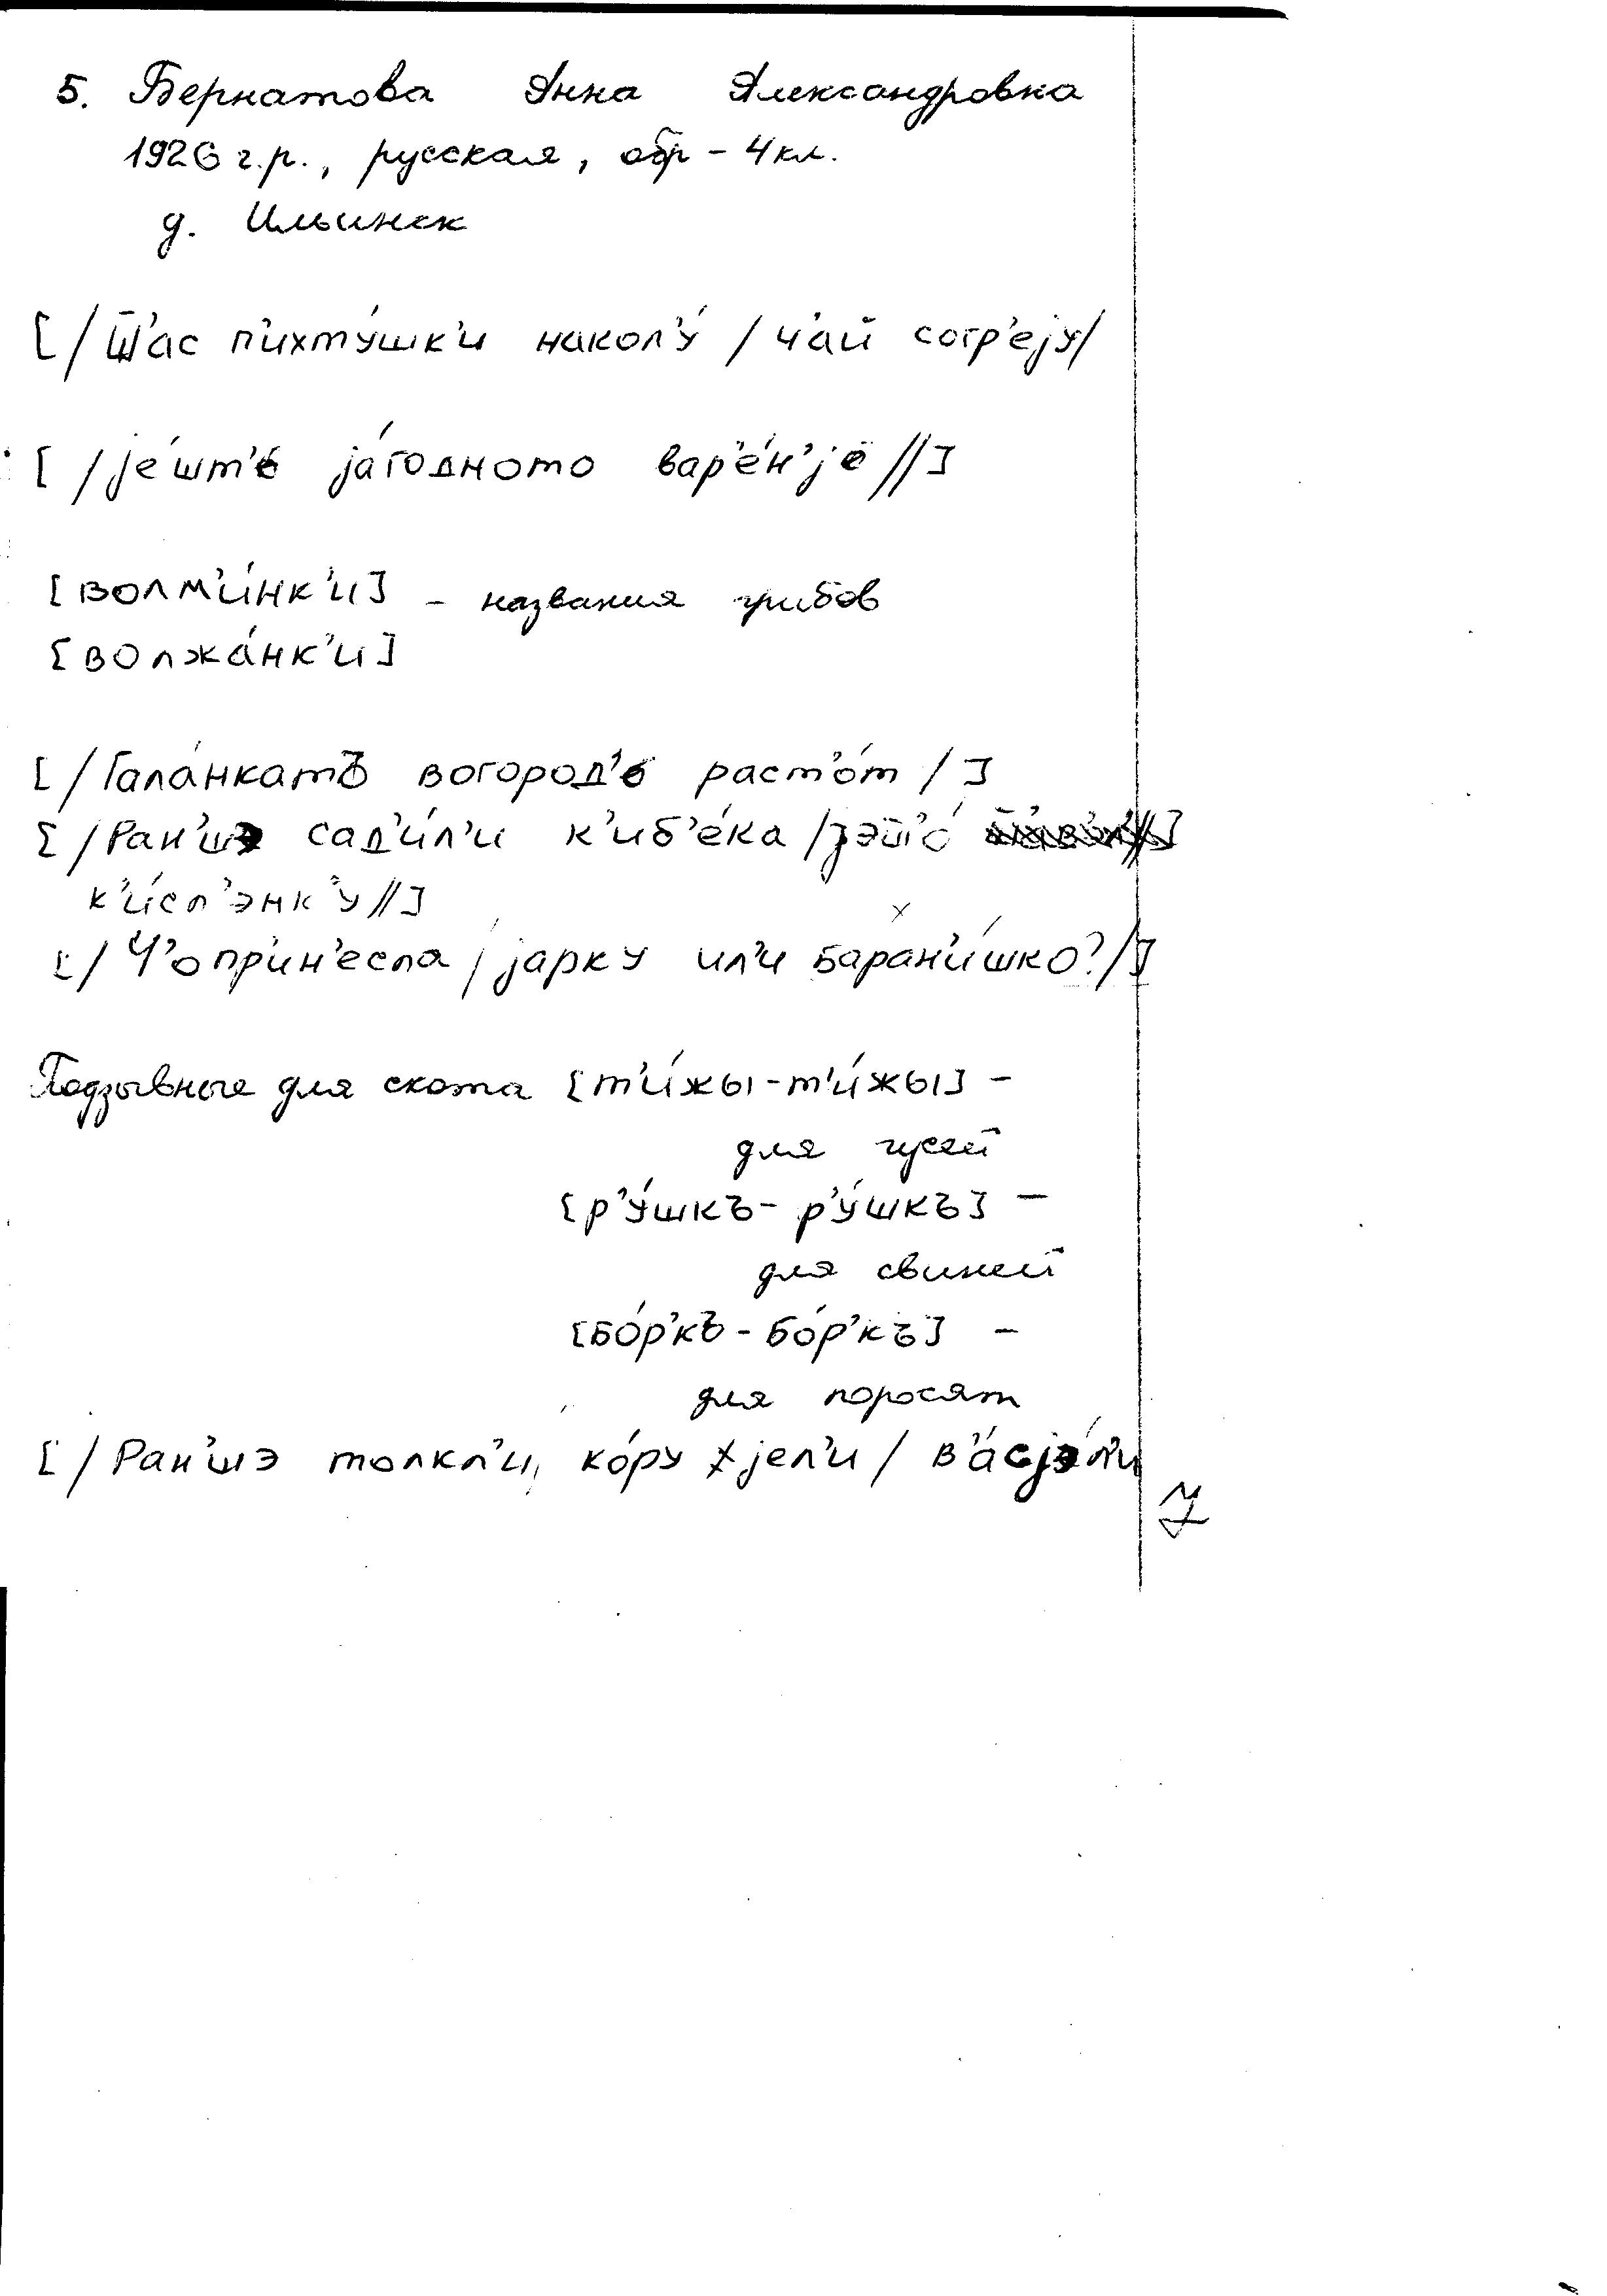 5. Бернатова Анна Александровна
1926 г.р., русская, обр - 4 кл.
д. Ильинск
[/Ш̄'ас п'ихту́шк'и накол'у́ / ч'ай согр'еју/
[/је́шт'о́ ја́годното вар'е́н'јо //]
[волм'и́нк'и] - названия грибов
[волжа́нк'и]
[/Гала́нкатъ вогород'е́ раст'о́т /]
[/Ран'шэ сад'и́л'и к'иб'е́ка /
к'и́сл'энк'у //]
[/Ч'о прин'есла / јарку ил'и баран'и́шко? /]
Подзывные для скота [т'и́жы-т'и́жы] -
для гусей
[р'у́шкъ- р'у́шкъ] -
для свиней
[бо́р'къ - бо́р'къ] -
для поросят
[/Ран'шэ толкл'и, ко́ру јел'и / в'а́сјэл'и
7